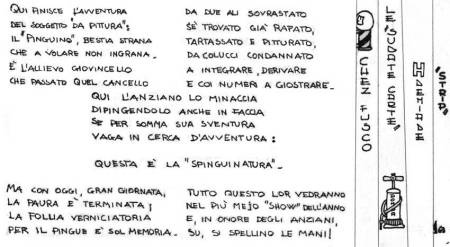 QUI FINISCE L'AVVENTURA
DEL SOGGETTO "DA PITURA";
IL "PINGUINO", BESTIA STRANA
CHE A VOLARE NON INGRANA.
È L'ALLIEVO GIOVINCELLO
CHE PASSATO QUEL CANCELLO
DA DUE ALI SOVRASTATO
SÈ TROVATO GIA' RAPATO,
TARTASSATO E PITTURATO,
DA COLUCCI CONDANNATO
A INTEGRARE, DERIVARE
E COI NUMERI A GIOSTRARE.
QUI L'ANZIANO LO MINACCIA
DIPINGENDOLO ANCHE IN FACCIA
SE PER SOMMA SUA SVENTURA
VAGA IN CERCA D'AVVENTURA:
QUESTA È LA "SPINGUINATURA".
MA CON OGGI, GRAN GIORNATA,
LA PAURA È TERMINATA;
LA FOLLIA VERNICIATORIA
PER IL PINGUE È SOL MEMORIA.
TUTTO QUESTO LOR VEDRANNO
NEL PIÙ MEJO "SHOW" DELL'ANNO
E, IN ONORE DEGLI ANZIANI,
SU, SI SPELLINO LE MANI!
CHEZ FUSCO
LE "SUDATE CARTE"
"STRIP"